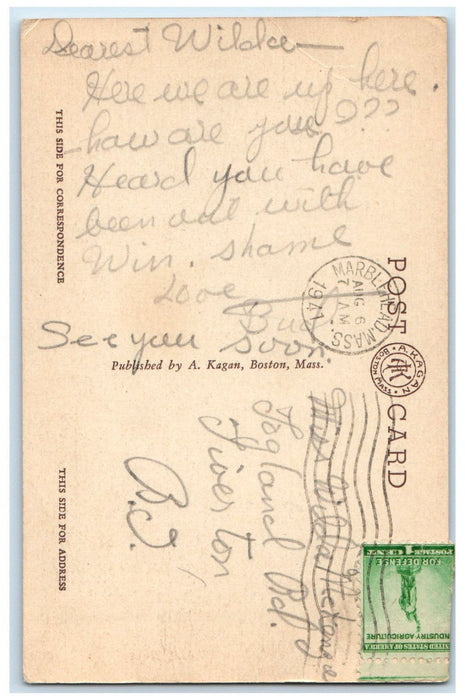 Dearest Willa—
Here we are up here.
how are you???
Heard you have
been out with
Win. shame
Love
Bud
See you soon
THIS SIDE FOR CORRESPONDENCE
Published by A. Kagan, Boston, Mass.
THIS SIDE FOR ADDRESS
POST CARD
A. KAGAN
BOSTON MASS.
MARBLEHEAD, MASS.
AUG 6
7 AM
1941
Miss Willa
Rd.
Tiverton
R.I.
UNITED STATES OF AMERICA
INDUSTRY AGRICULTURE
FOR DEFENSE
POSTAGE 1 CENT